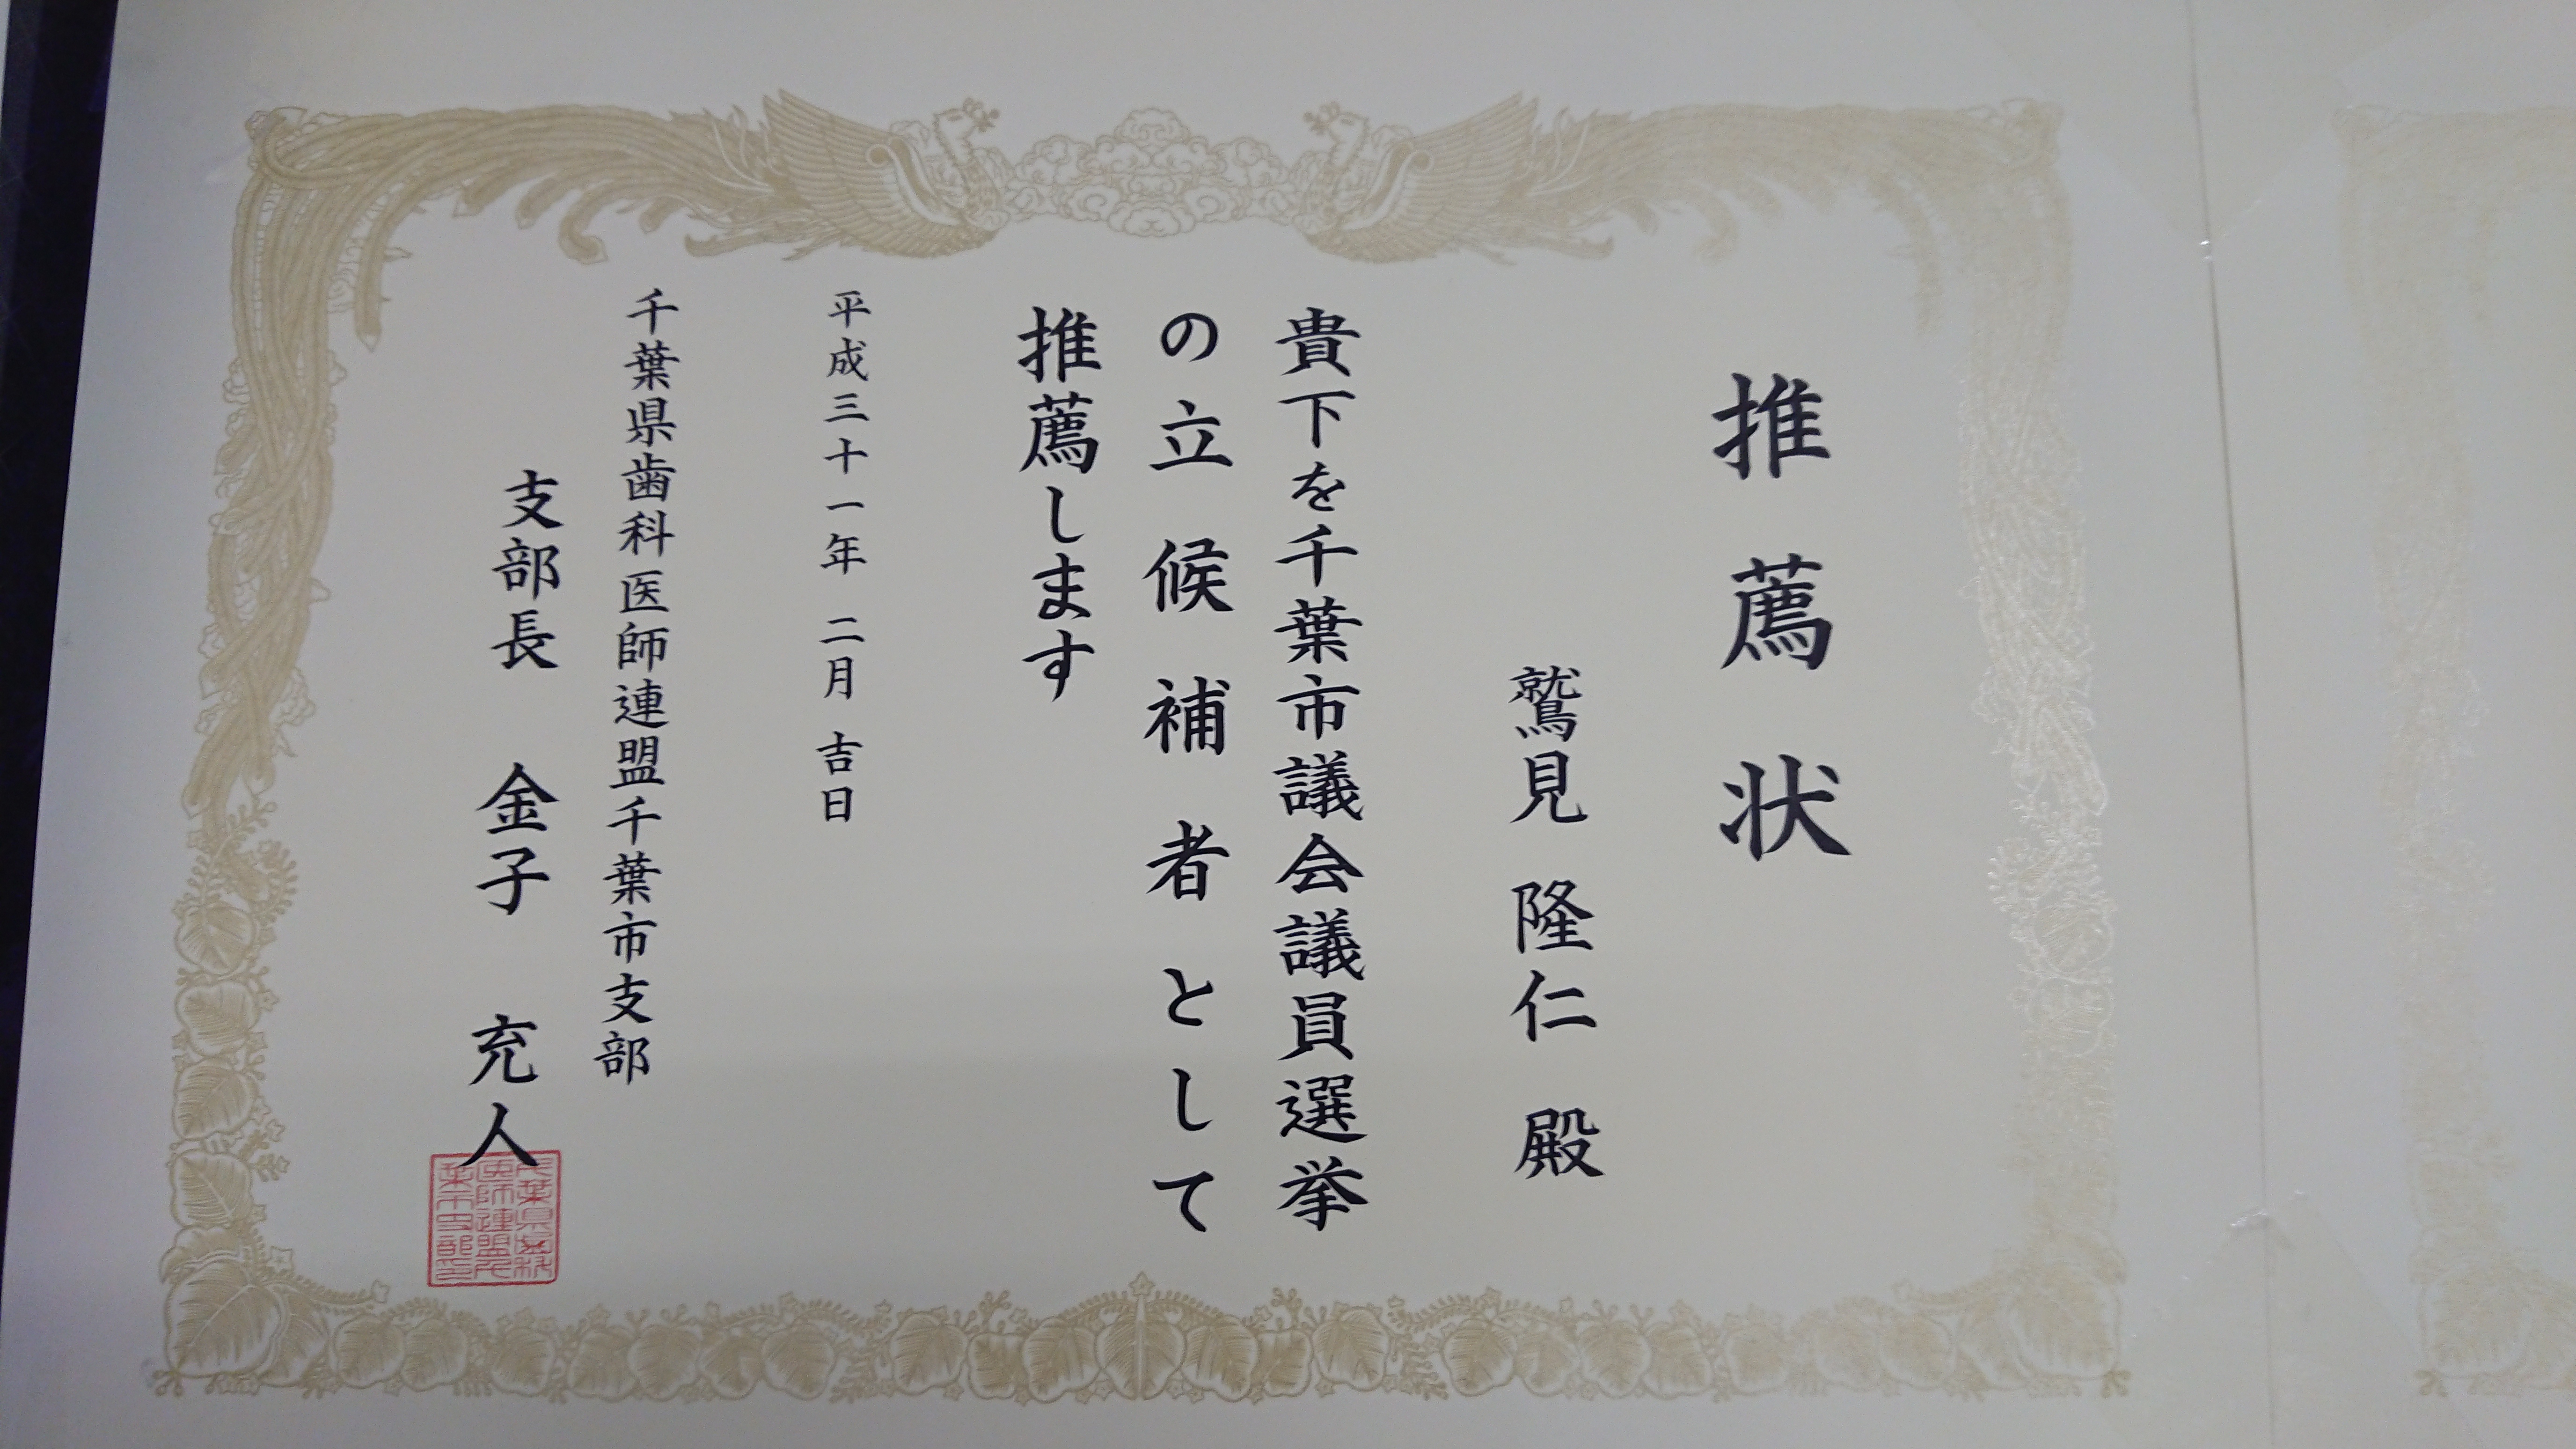 推薦状
鷲見 隆仁 殿
貴下を千葉市議会議員選挙
の立候補者として
推薦します
平成三十一年 二月 吉日
千葉県歯科医師連盟千葉市支部
支部長 金子 充人